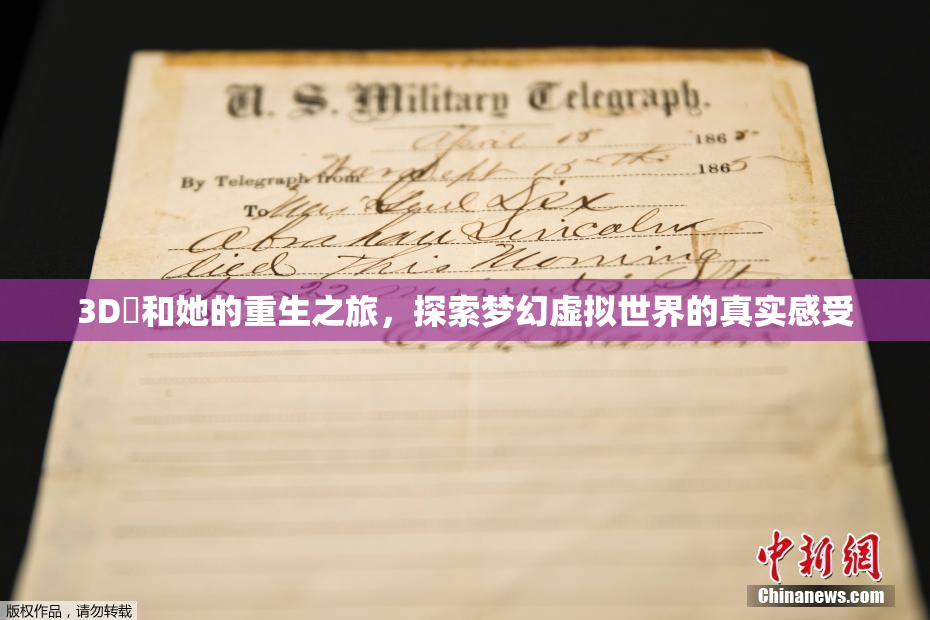 U. S. Military Telegraph.
April 15 1865
By Telegraph from War Dept 15th 1865
To Maj Genl Dix
Abraham Lincoln
died This Morning
22 minutes after
3D和她的重生之旅，探索梦幻虚拟世界的真实感受
E. M. Stanton
中新网
Chinanews.com
版权作品，请勿转载